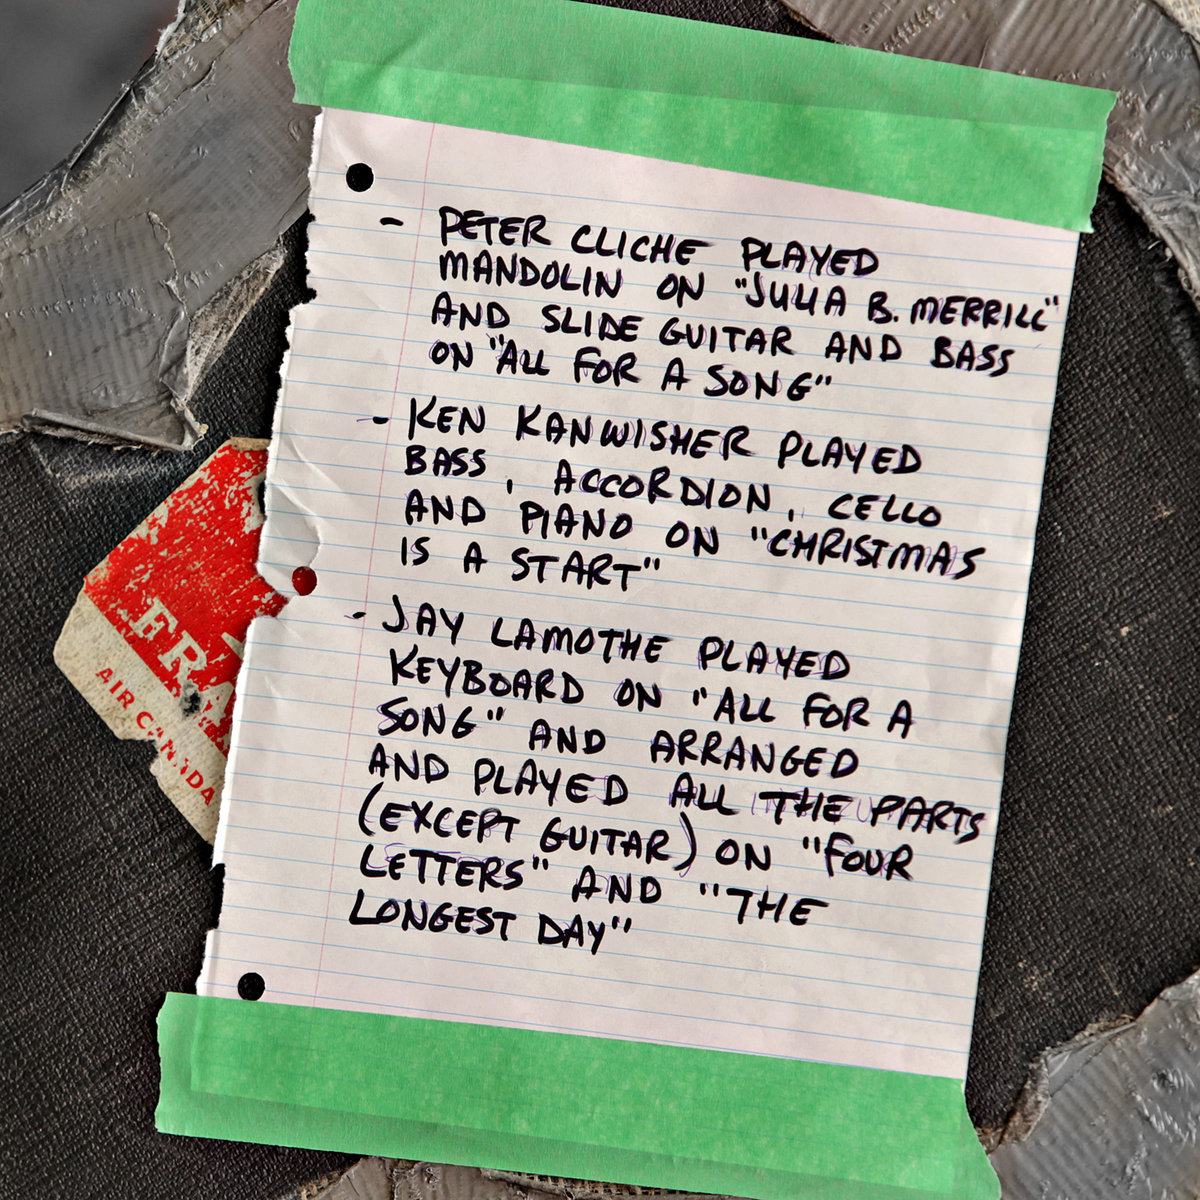 - PETER CLICHE PLAYED
MANDOLIN ON "JULIA B. MERRILL"
AND SLIDE GUITAR AND BASS
ON "ALL FOR A SONG"
- KEN KANWISHER PLAYED
BASS, ACCORDION, CELLO
AND PIANO ON "CHRISTMAS
IS A START"
- JAY LAMOTHE PLAYED
KEYBOARD ON "ALL FOR A
SONG" AND ARRANGED
AND PLAYED ALL THE PARTS
(EXCEPT GUITAR) ON "FOUR
LETTERS" AND "THE
LONGEST DAY"
FRA
AIR CANADA